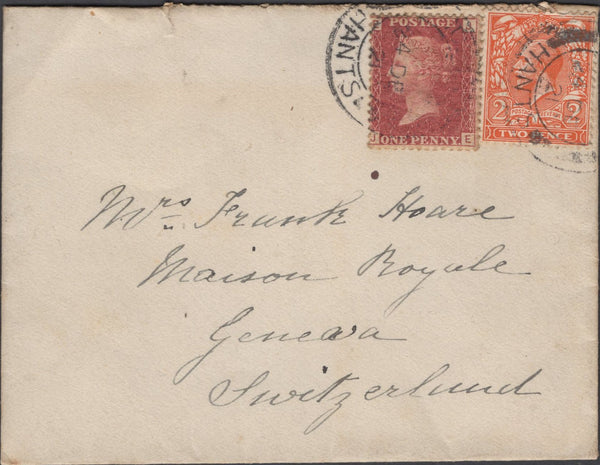 POSTAGE
J ONE PENNY E
2 2
TWO PENCE
HANTS
24 DE
HANTS
Mrs Frank Hoare
Maison Royale
Geneva
Switzerland